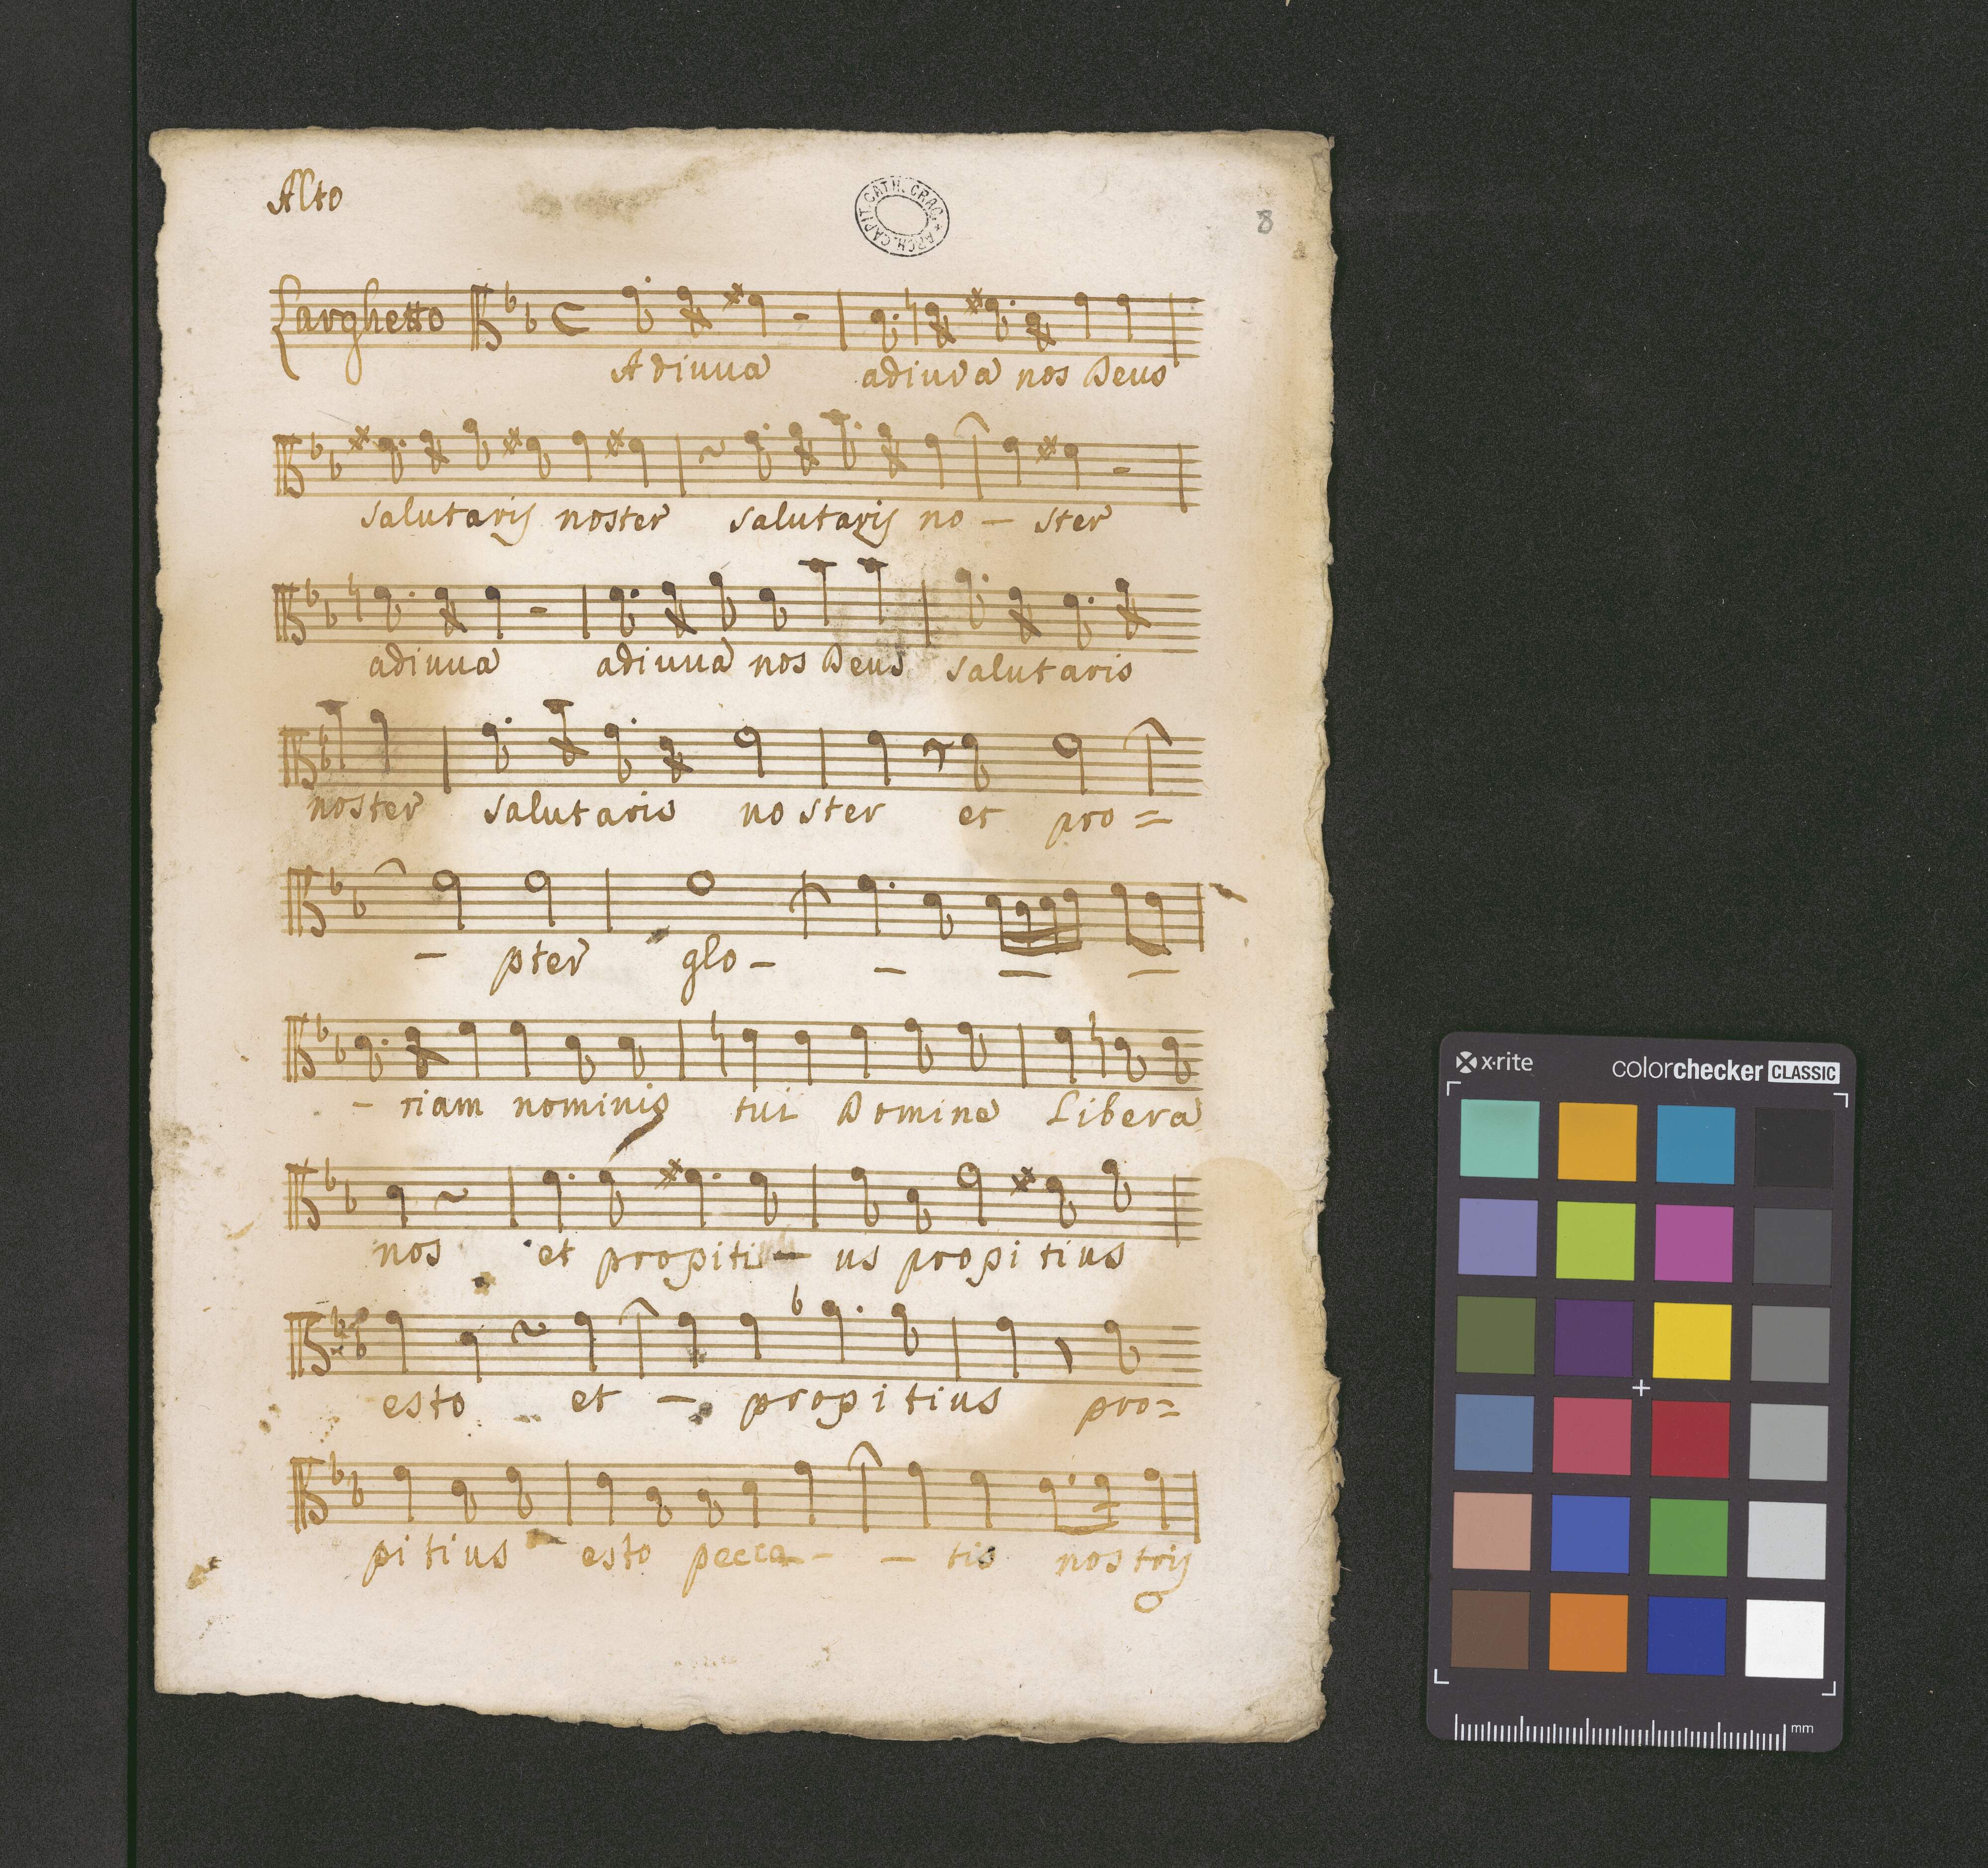 Alto
ARCH. CAPIT. CATH. CRAC.
8
Larghetto
Adiuua adiuva nos Deus
salutaris noster salutaris no - ster
adiuua adiuua nos Deus salutaris
noster salutaris noster et pro=
- pter glo - - - -
- riam nominis tui Domine Libera
nos et propiti - us propitius
esto et - propitius pro=
pitius esto pecca - - tis nostris
x·rite colorchecker CLASSIC
mm